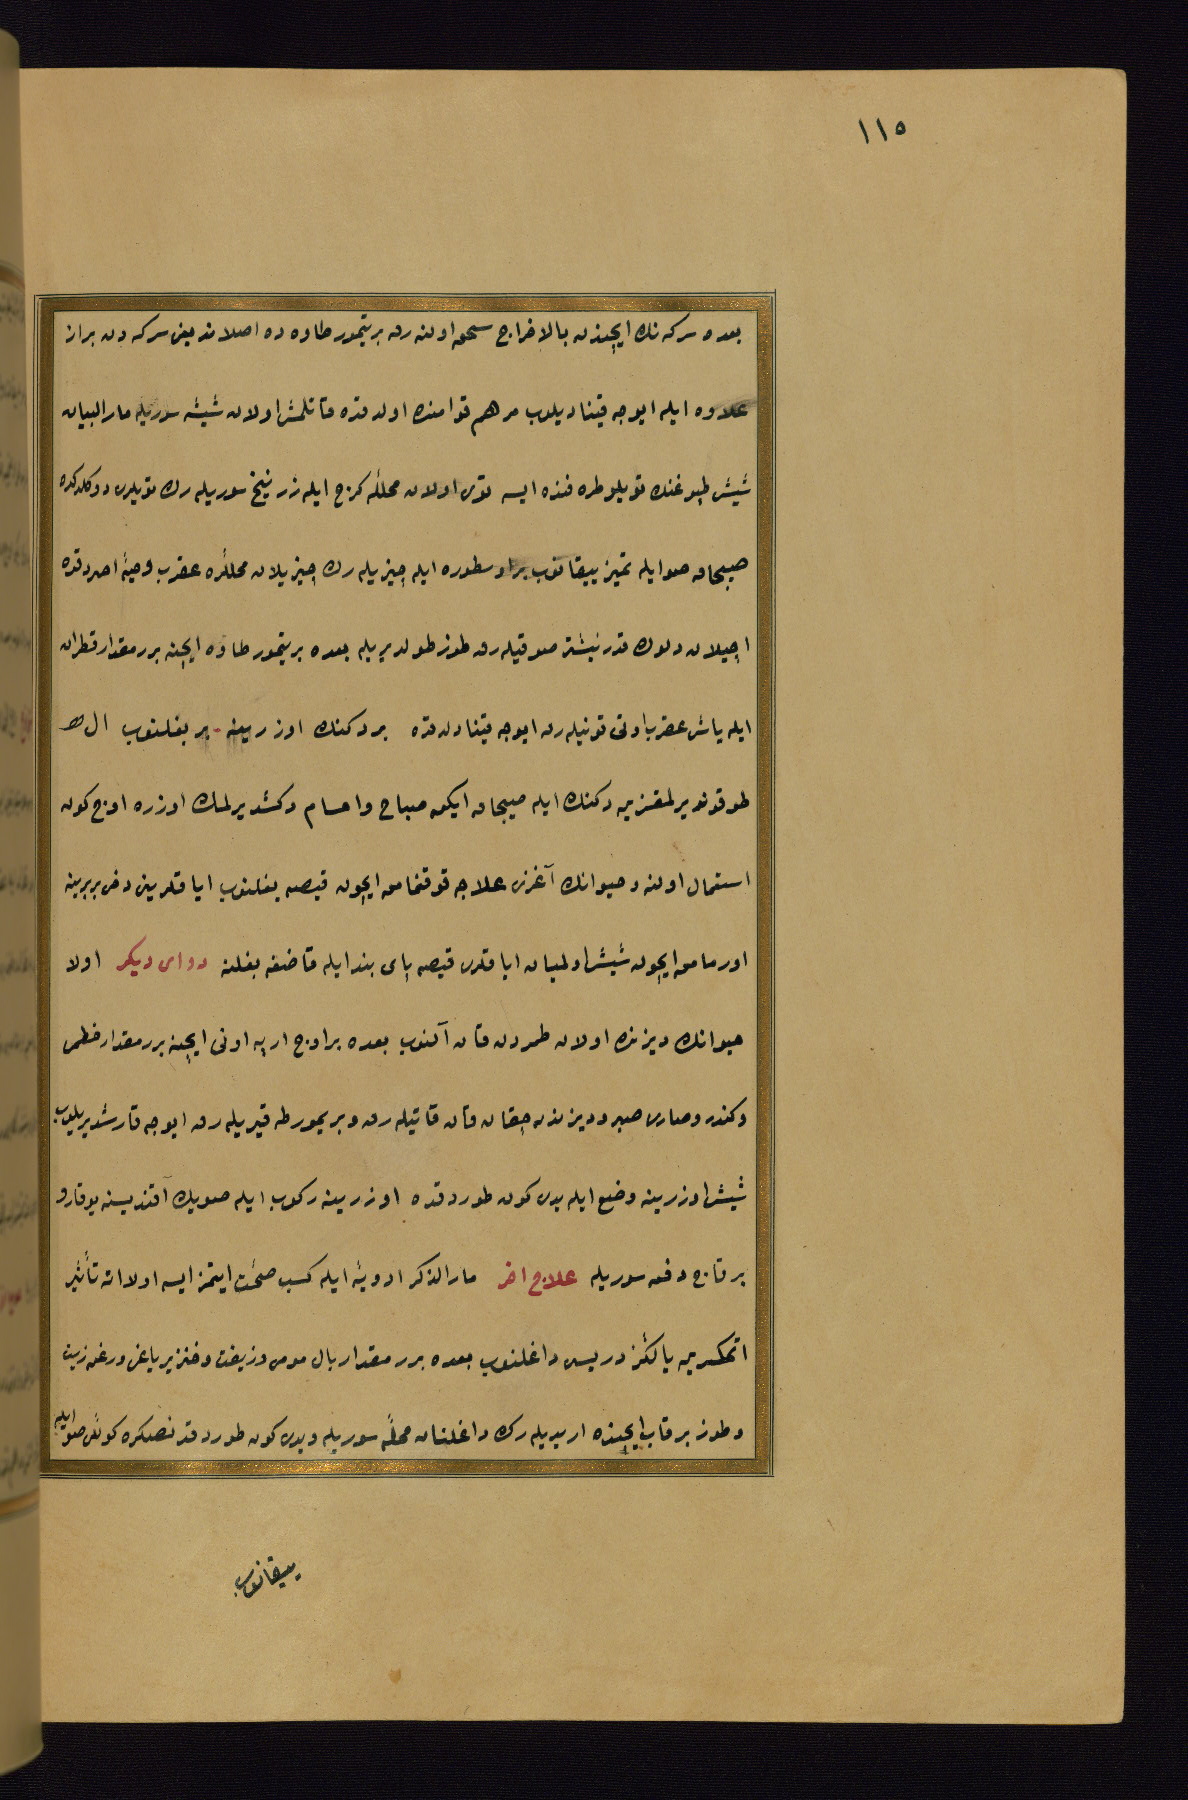 ١١٥
بعده سركه نك ايچندن بالاخراج سحق اولنه رق بر تيمور طاوه ده اصلاندیغی سركه دن براز
علاوه ايله ايوجه قيناديلوب مرهم قوامنده اولدقده قاتلمش اولان شيشه سوريله مار البيان
شيش طپوغنك توپلو طرفنده ايسه توی اولان محلله كرج ايله زرنيخ سوريله رك تويلری دوكلدكده
صيجاق صو ايله تميز ييقانوب براوسطوره ايله چيزيله رك چيزيلان محللره عقرب وحيۀ
اچيلان دلوك قدر نيشتر صوقيله رق طوز طولديريله بعده بر تيمور طاوه ايچنه برر مقدار قطران
ايله ياش عقرب اوتی قونيله رق ايوجه قينادلدقده بر دكنك اوزرينه بر بغلنوب ال
طوقونديرلمقزين دكنك ايله صيجاق ايكن صباح واخشام دكشديرلمك اوزره اوچ كون
استعمال اولنه وحيوانك آغزی علاجه قوقمامق ايچون قيصه بغلنوب اياقلرين دخی بربرينه
اورمامق ايچون شيش اولميان اياقلری قيصه پای بند ايله قاضغه بغلنه دوای ديكر اولا
حيوانك ديزنده اولان طمردن قان آلنوب بعده براوج ارپه اونی ايچنه برر مقدار خطمی
وكندر وصاری صبر وديزندن چقان قان قاتيله رق وبر يمورطه قيريله رق ايوجه قارشديريلوب
شيش اوزرينه وضع ايله يدی كون طوردقده اوزرينه ركوب ايله صويك آقنديسنه يوقارو
بر قاچ دفعه سوريله علاج اخر مار الذكر ادويۀ ايله كسب صحت ايتمز ايسه اولا اته تأثير
اتمكسزين يالكز دريسی داغلنوب بعده برر مقدار بال مومی وزيفت وخنزير ياغی وروغن زيت
وطوز بر قاب ايچنده اريديله رك داغلنان محله سوريله ويدی كون طوردقدنصكره صو ايله
ييقانوب